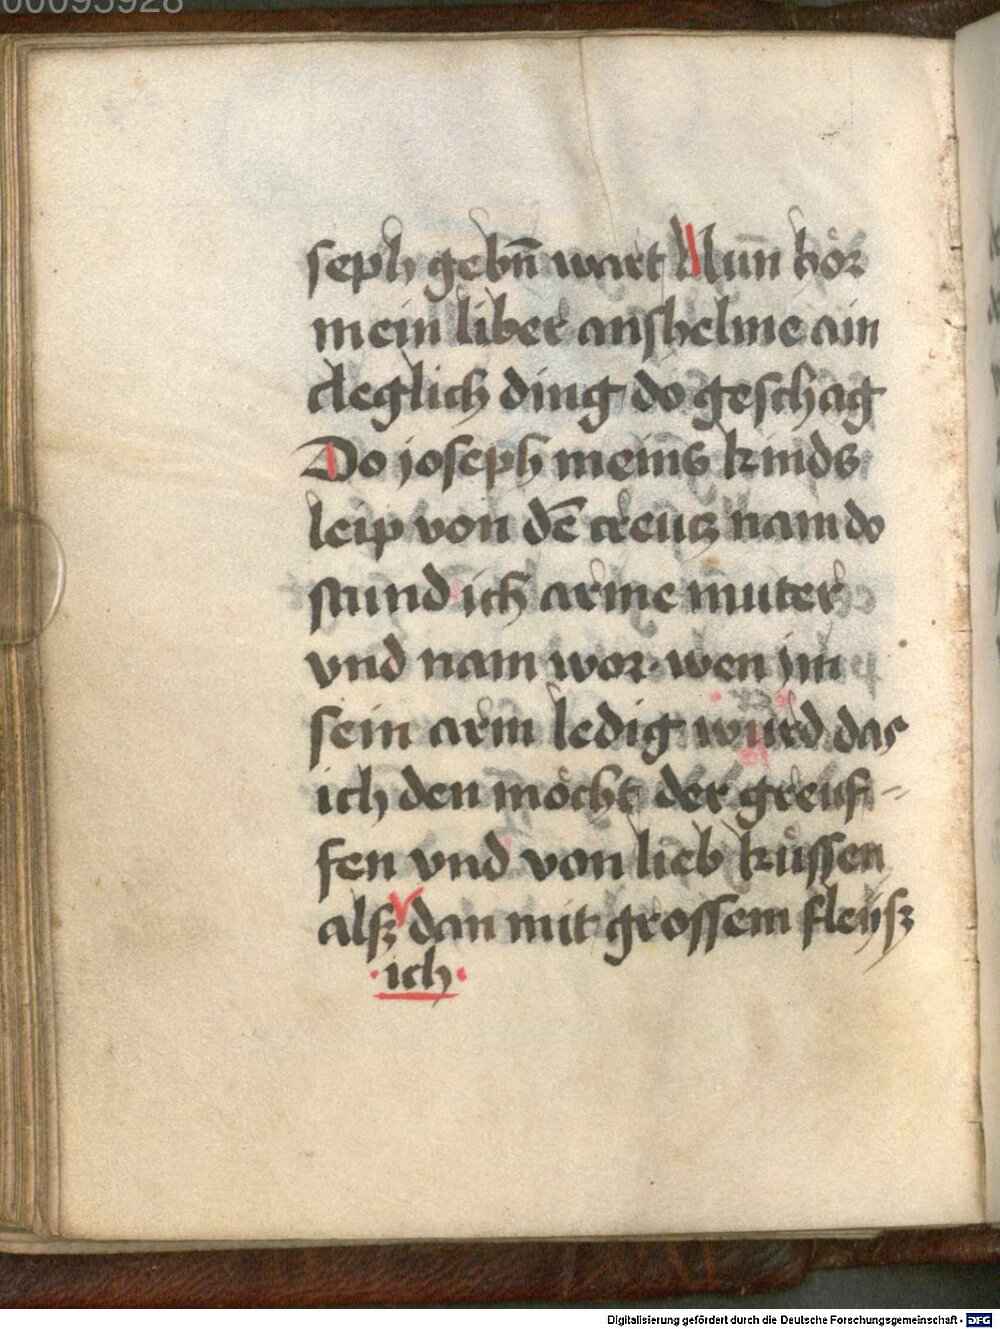 00095928
seph gebn̄ wart Nun hör
mein liber anshelme ain
cleglich ding do geschag
Do joseph meins kinds
leip von dē creutz nam do
stund ich arme muter
vnd nam wor wen jm
sein arm ledig wurd das
ich den möcht der greuf-
fen vnd von lieb küssen
alsz dan mit grossem fleysz
·ich·
Digitalisierung gefördert durch die Deutsche Forschungsgemeinschaft - DFG